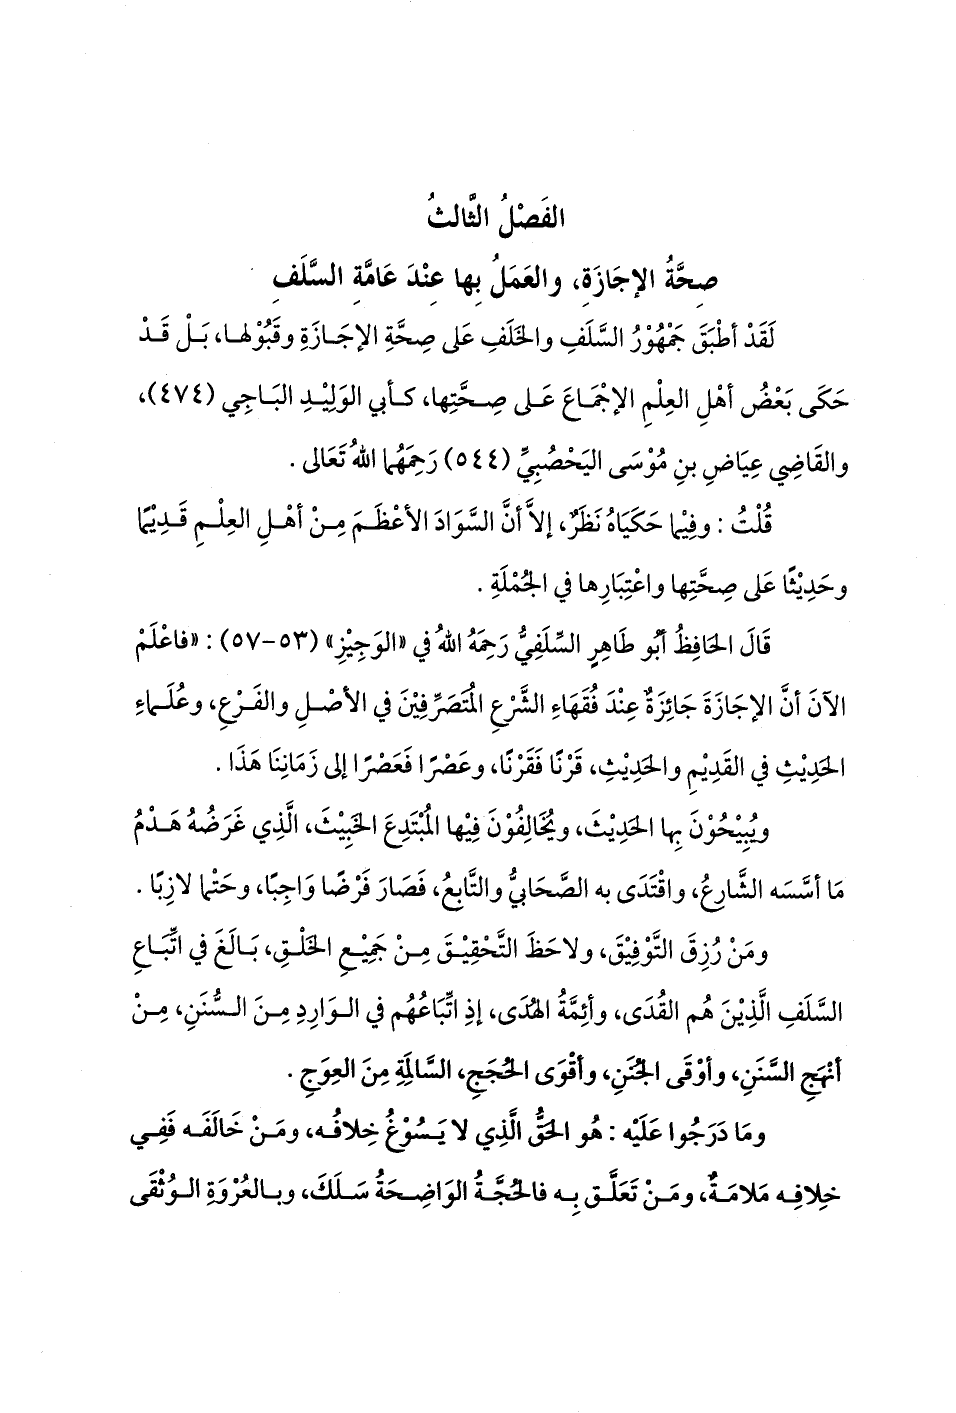 الفَصْلُ الثَّالثُ
صِحَّةُ الإجَازَةِ، والعَمَلُ بِها عِنْدَ عَامَّةِ السَّلَفِ
لَقَدْ أطْبَقَ جَمْهُوْرُ السَّلَفِ والخَلَفِ عَلى صِحَّةِ الإجَازَةِ وقَبُوْلها، بَلْ قَدْ
حَكَى بَعْضُ أهْلِ العِلْمِ الإجْمَاعَ عَلى صِحَّتِها، كأبي الوَلِيْدِ البَاجِي (٤٧٤)،
والقَاضِي عِيَاضِ بنِ مُوْسَى اليَحْصُبِيِّ (٥٤٤) رَحِمَهُما اللهُ تَعَالى .
قُلْتُ : وفِيْما حَكَيَاهُ نَظَرٌ، إلاَّ أنَّ السَّوَادَ الأعْظَمَ مِنْ أهْلِ العِلْمِ قَدِيْمًا
وحَدِيْثًا عَلى صِحَّتِها واعْتِبَارِها في الجُمْلَةِ .
قَالَ الحَافِظُ أبُو طَاهِرٍ السِّلَفِيُّ رَحِمَهُ اللهُ في «الوَجِيْزِ» (٥٣-٥٧) : «فاعْلَمْ
الآنَ أنَّ الإجَازَةَ جَائِزَةٌ عِنْدَ فُقَهَاءِ الشَّرْعِ المُتَصَرِّفِيْنَ في الأصْلِ والفَرْعِ، وعُلَماءِ
الحَدِيْثِ في القَدِيْمِ والحَدِيْثِ، قَرْنًا فَقَرْنًا، وعَصْرًا فَعَصْرًا إلى زَمَانِنَا هَذَا .
ويُبِيْحُوْنَ بِها الحَدِيْثَ، ويُخَالِفُوْنَ فِيْها المُبْتَدِعَ الخَبِيْثَ، الَّذِي غَرَضُهُ هَدْمُ
مَا أسَّسَه الشَّارعُ، واقْتَدَى به الصَّحَابيُّ والتَّابعُ، فَصَارَ فَرْضًا وَاجِبًا، وحَتْما لازِبًا .
ومَنْ رُزِقَ التَّوْفِيْقَ، ولاحَظَ التَّحْقِيْقَ مِنْ جَمِيْعِ الخَلْقِ، بَالَغَ في اتِّبَاعِ
السَّلَفِ الَّذِيْنَ هُم القُدَى، وأئِمَّةُ الهُدَى، إذِ اتِّبَاعُهُم في الوَارِدِ مِنَ السُّنَنِ، مِنْ
أنْهَجِ السَّنَنِ، وأوْقَى الجُنَنِ، وأقْوَى الحُجَجِ، السَّالمَةِ مِنَ العِوَجِ .
ومَا دَرَجُوا عَلَيْه : هُو الحَقُّ الَّذِي لا يَسُوْغُ خِلافُه، ومَنْ خَالَفَه فَفِي
خِلافِه مَلامَةٌ، ومَنْ تَعَلَّق بِه فالحُجَّةُ الوَاضِحَةُ سَلَكَ، وبالعُرْوَةِ الوُثْقَى